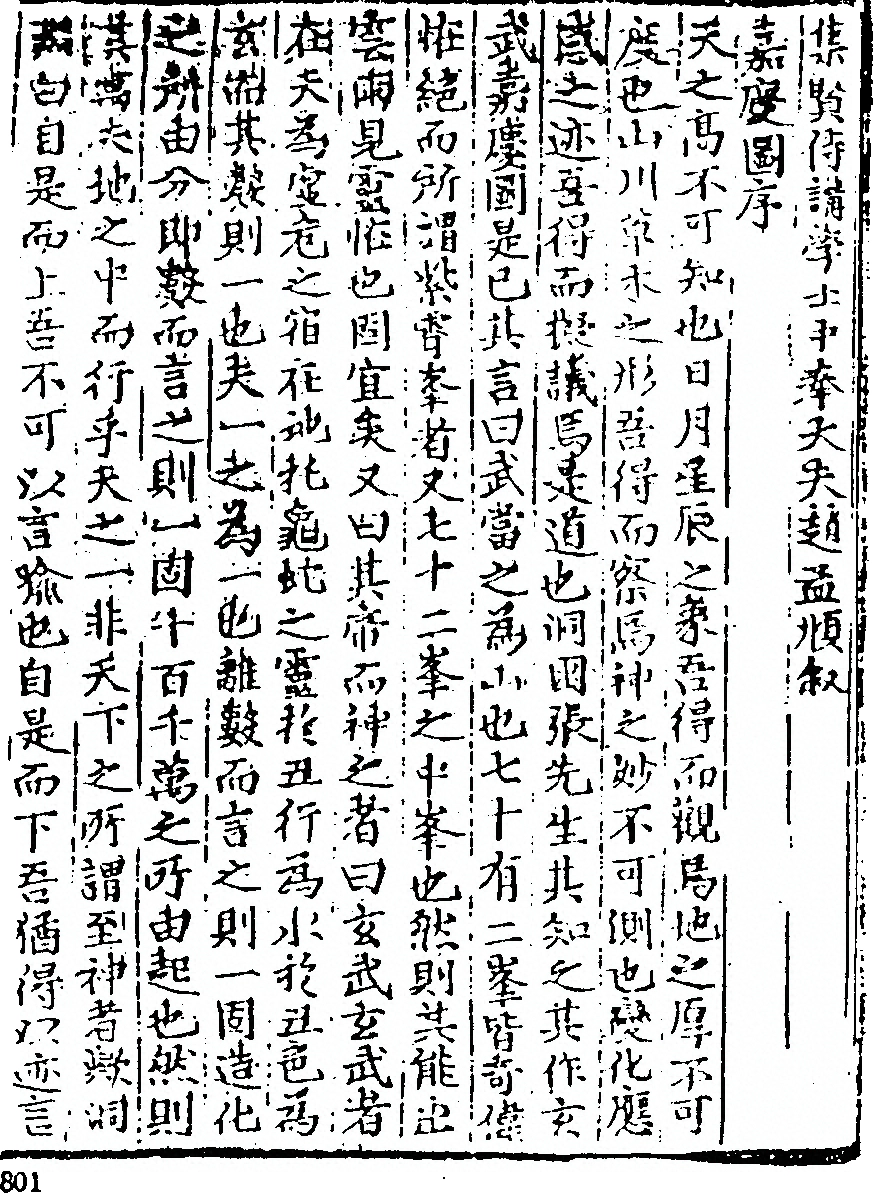 集賢侍講學士中奉大夫趙孟頫叙
嘉慶圖序
天之高不可知也日月星辰之象吾得而觀焉地之厚不可
度也山川草木之形吾得而察焉神之妙不可測也變化應
感之迹吾得而擬議焉是道也洞囦張先生其知之其作玄
武嘉慶圖是已其言曰武當之為山也七十有二峯皆奇偉
恠絕而所謂紫霄峯者又七十二峯之中峯也然則其能出
雲雨見靈恠也固宜矣又曰其帝而神之者曰玄武玄武者
在天為虛危之宿在地托龜蛇之靈於五行為水於五色為
玄啚其數則一也夫一之為一也離數而言之則一固造化
之所由分即數而言之則一固十百千萬之所由起也然則
其為天地之中而行乎天之一非天下之所謂至神者歟洞
囦曰自是而上吾不可以言喻也自是而下吾猶得以迹言
801